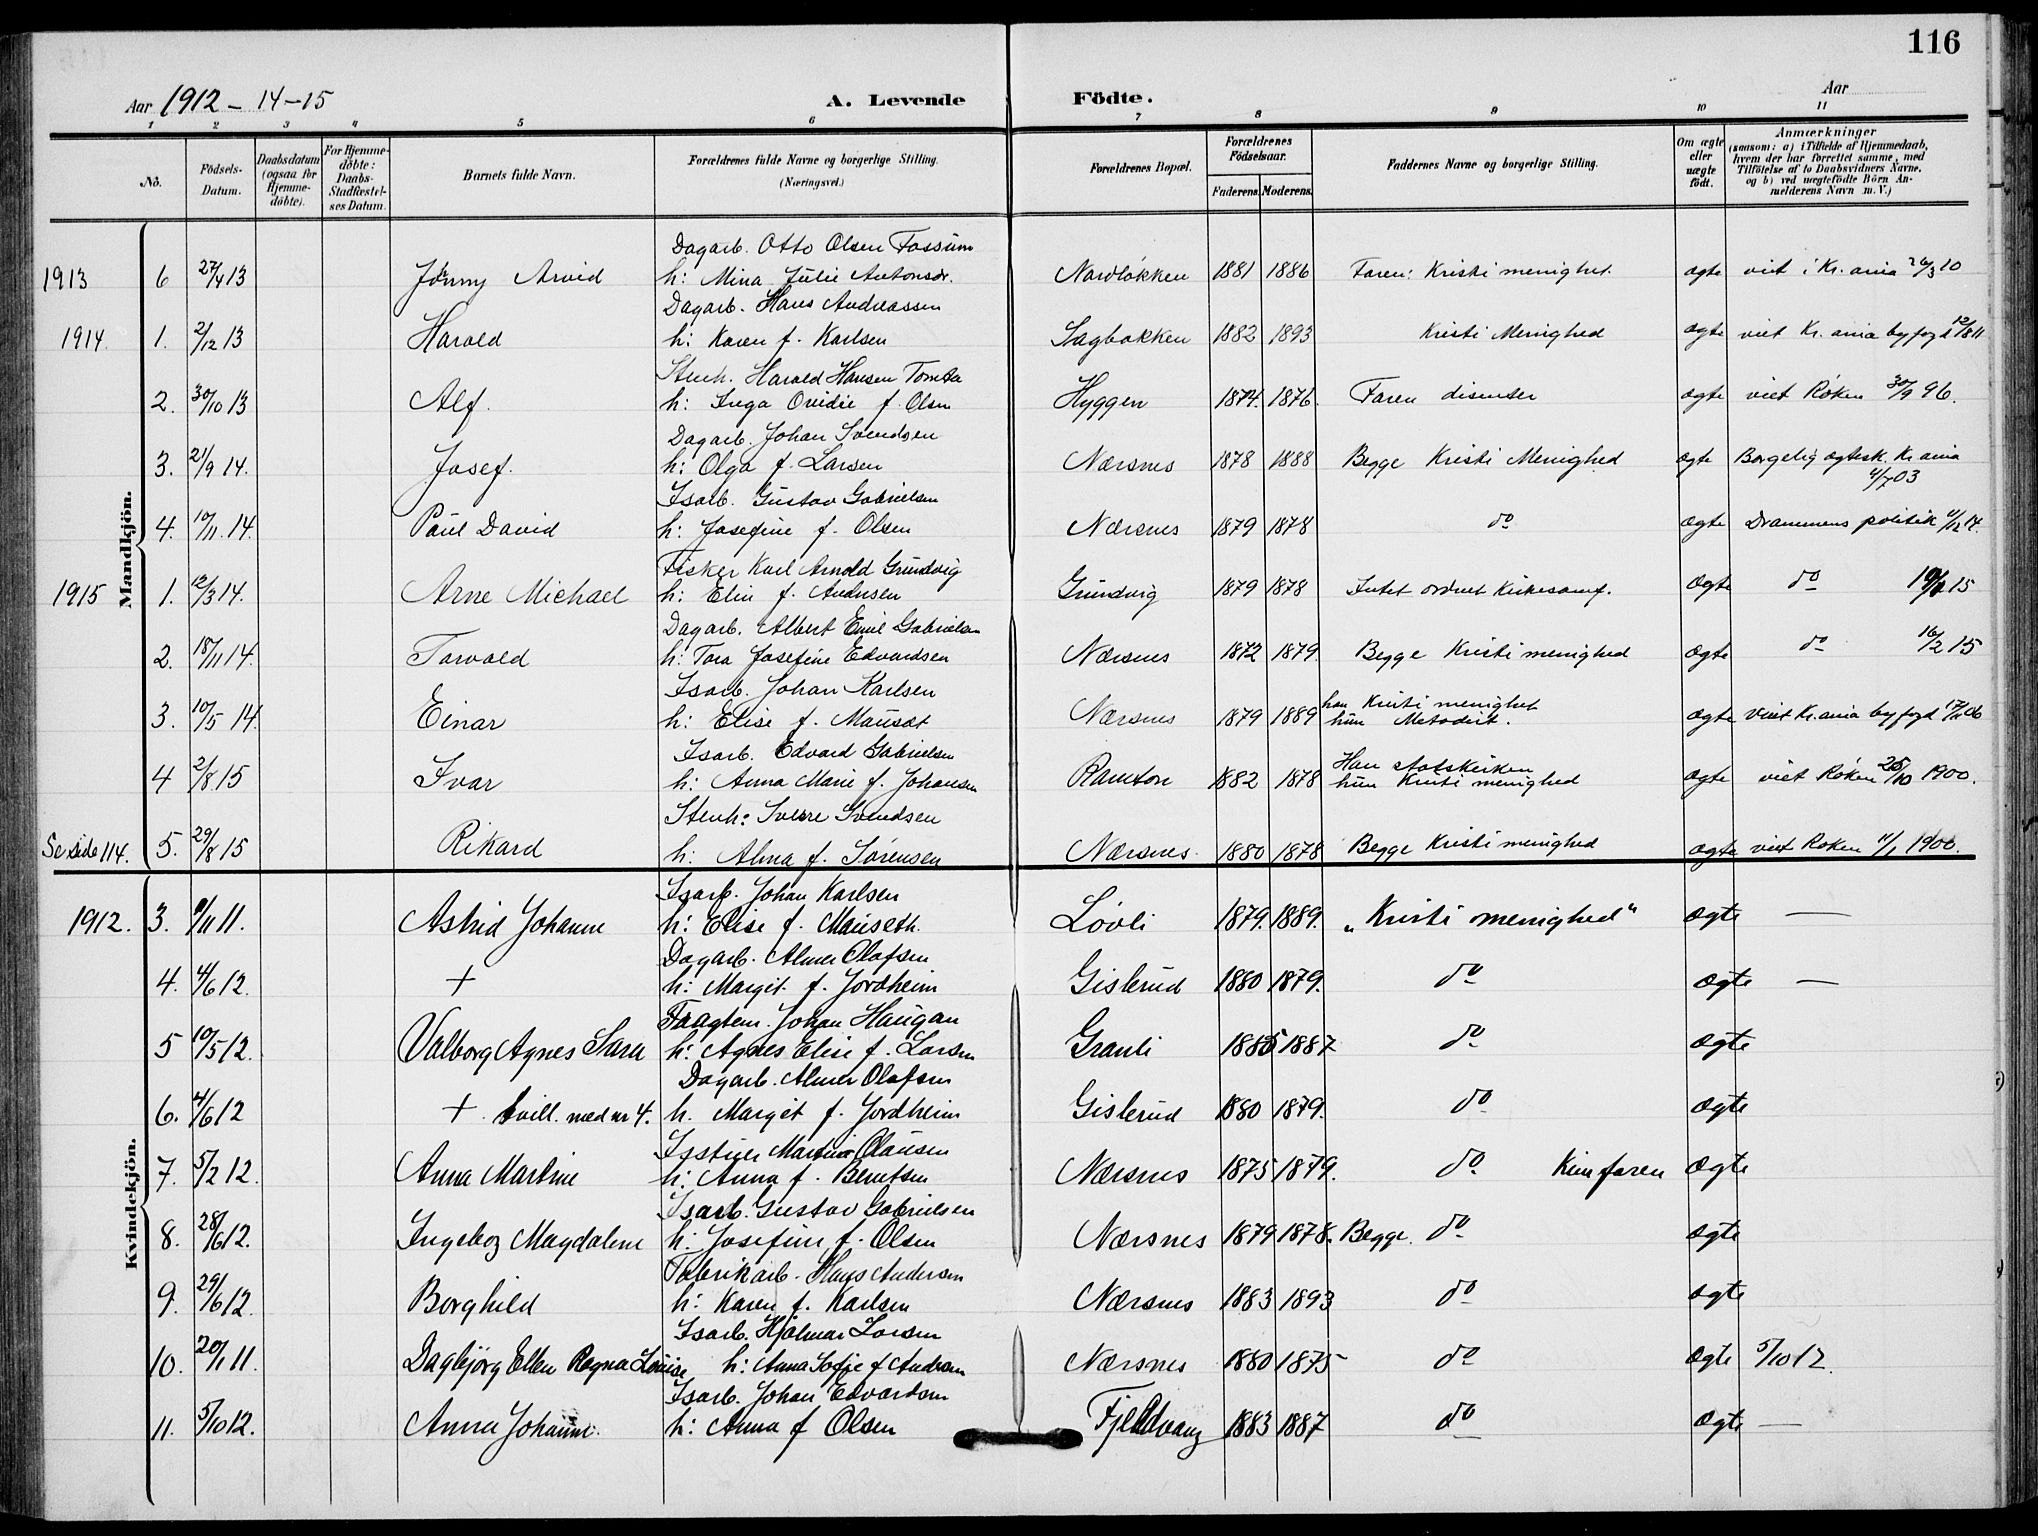 116
Aar 1912-14-15
A. Levende Födte.
Aar
1 2 3 4 5 6 7 8 9 10 11
No.
Födsels-Datum.
Daabsdatum (ogsaa for Hjemme-døbte).
For Hjemme-døbte: Daabs-Stadfæstel-ses Datum.
Barnets fulde Navn.
Forældrenes fulde Navne og borgerlige Stilling. (Næringsvei.)
Forældrenes Bopæl.
Forældrenes Födselsaar.
Faderens. Moderens.
Faddernes Navne og borgerlige Stilling.
Om ægte eller uægte født.
Anmærkninger (saasom: a) i Tilfælde af Hjemmedaab, hvem der har forrettet samme, med Tilføielse af to Daabsvidners Navne, og b) ved uægtefødte Börn An-melderens Navn m. V.)
Mandkjön.
Dagarb. Otto Olsen Fossum
1913 6 27/4 13 Jonny Arvid h: Mina Julie Antonsdr. Nordløkken 1881 1886 Faren: Kristi menighet. ægte viet i Kr.ania 26/3 10
Dagarb. Hans Andreassen
1914. 1. 2/12 13 Harald h: Karen f. Karlsen Sagbakken 1882 1893 Kristi Menighed ægte viet Kr.ania byfogd 12/8 11
Stenh. Harald Hansen Tomta
2. 30/10 13 Alf. h: Inga Ovidie f. Olsen Hyggen 1874. 1876. Faren disenter ægte viet Røken 30/9 96.
Dagarb. Johan Svendsen
3. 21/9 14. Josef. h: Olga f. Larsen Nærsnes 1878 1888 Begge Kristi Menighed ægte Borgelig ægtesk. Kr.ania 4/7 03
Isarb. Gustav Gabrielsen
4. 10/11 14. Paul David h: Josefine f. Olsen Nærsnes 1879 1878 do ægte Drammens politik 11/12 14.
Fisker Karl Arnold Grundvig
1915 1. 12/3 14. Arne Michael h: Elin f. Andersen Grundvig 1879 1878 Intet ordnet Kirkesamf. ægte do 15
Dagarb. Albert Emil Gabrielsen
2. 18/11 14. Torvald h: Tora Josefine Edvardsen Nærsnes 1872 1879. Begge Kristi menighed ægte do 16/2 15
Isarb. Johan Karlsen
3. 10/5 14. Einar h: Elise f. Mauset Nærsnes 1879 1889 han Kristi menighet hun Metodist. ægte Viet Kr.ania byfogd 06
Isarb. Edvard Gabrielsen
4 2/8 15 Ivar h: Anna Marie f. Johansen Ramton 1882 1878 Han Statskirken hun Kristi menighed ægte viet Røken 25/10 1900.
Stenh: Sverre Svendsen
Se side 114. 5. 29/8 15 Rikard h: Alma f. Sørensen Nærsnes. 1880 1878 Begge Kristi menighed ægte viet Røken 11/1 1900.
Kvindekjön.
Isarb. Johan Karlsen
1912. 3. 11. Astrid Johanne h: Elise f. Mauseth. Løvli 1879. 1889. „Kristi menighed" ægte —
Dagarb. Almer Olafsen
4. 4/6 12. + h: Margit f. Jordheim Gislerud 1880 1879. do ægte —
Fragtem. Johan Haugan
5 10/5 12. Valborg Agnes Sara h: Agnes Elise f. Larsen Granli 1885 1887 do ægte
Dagarb. Almer Olafsen
6. 4/6 12 + tvill. med nr 4. h. Margit f. Jordheim Gislerud 1880 1879. do ægte
Martin Clausen
7. 5/2 12. Anna Martine h: Anna f. Berntsen Nærsnes 1875 1879. do Kun faren ægte
Isarb. Gustav Gabrielsen
8. 28/6 12. Ingeborg Magdalene h: Josefine f. Olsen Nærsnes 1879 1878. Begge. do ægte
Fabrikarb. Hans Andersen
9. 29/6 12. Borghild h: Karen f. Karlsen Nærsnes 1883 1893 do ægte
Isarb. Hjalmar Larsen
10. 20/1 11. Dagbjörg Ellen Ragna Louise h: Anna Sofie f Andersen Nærsnes 1880 1875 do ægte 5/10 12.
Isarb. Johan Edvardsen
11. 5/10 12. Anna Johanne. h: Anna f Olsen Fjeldvang 1883 1887 do ægte —